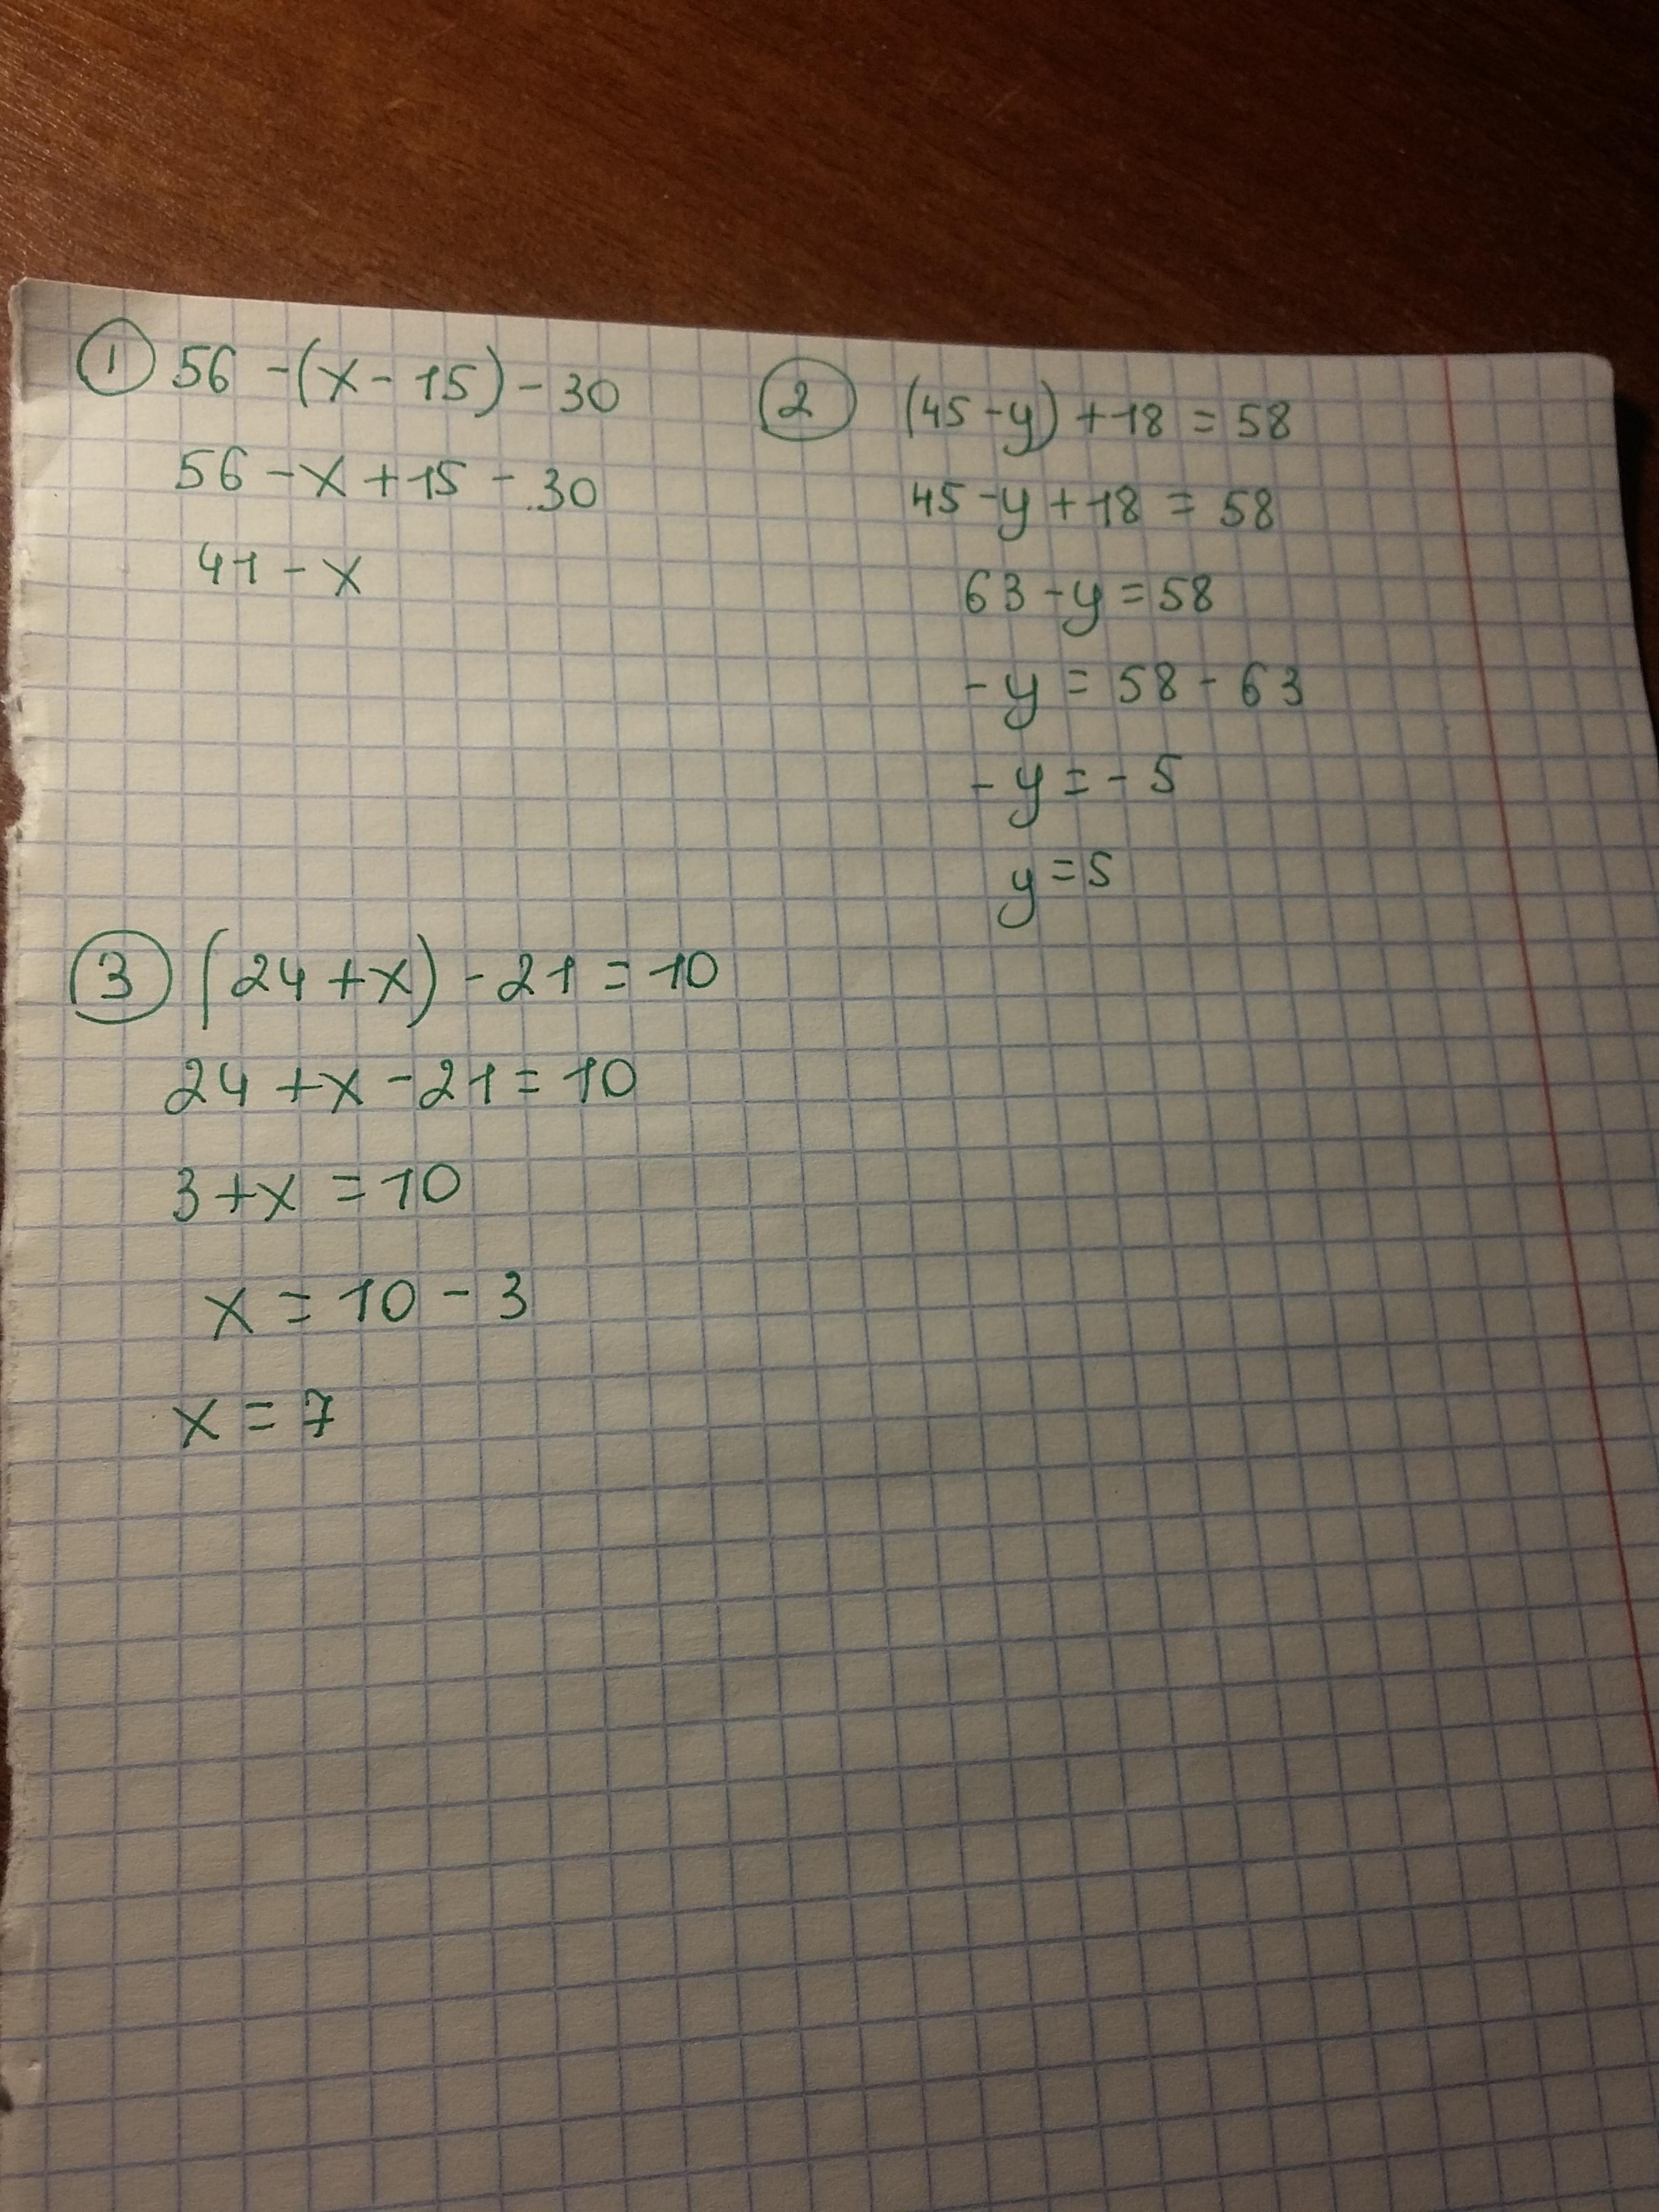 ① 56 - (x - 15) - 30
56 - x + 15 - 30
41 - x
② (45 - y) + 18 = 58
45 - y + 18 = 58
63 - y = 58
- y = 58 - 63
- y = - 5
y = 5
③ (24 + x) - 21 = 10
24 + x - 21 = 10
3 + x = 10
x = 10 - 3
x = 7